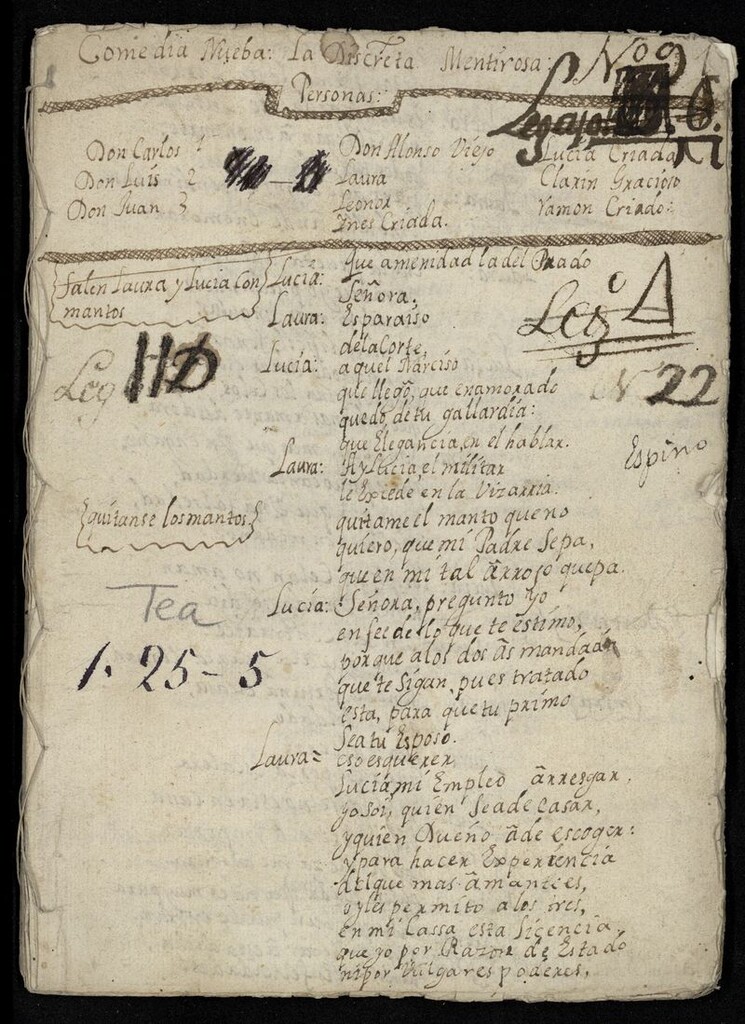 Comedia Nueba: La Discreta Mentirosa:
Nº 9
Personas:
Legajo 6.
Don Carlos 1
Don Luis 2
Don Juan 3
Don Alonso Viejo
Laura
Leonor
Ines Criada.
Lucia Criada
Clarin Gracioso
Ramon Criado:
Salen Laura y Lucia con
mantos
Lucia: que amenidad la del Prado
Señora.
Laura: Esparaiso
delaCorte,
Lucia: aquel Narciso
que llegó, que enamorado
quedó, de tu gallardia:
que Elegancia, en el hablar.
Laura: Ay Lucia, el militar
le Excede en la Vizarria.
quitame el manto que no
quiero, que mi Padre Sepa,
que en mi tal ârrojo quepa.
Lucia: Señora, pregunto Yo
en fee de lo que te estimo,
porque alos dos âs mandado
que te Sigan, pues tratado
esta, para que tu primo
Sea tu Esposo.
Laura = eso es querer,
Lucia mi Empleo ârresgar,
yo Soi, quien Seade Casar,
y quien Dueño âde escoger:
y para hacer Experiencia
de que mas âmantes,
yles permito a los tres,
en mi Cassa esta licencia,
que yo por Razon de Estado
ni por Vulgares poderes,
Leg 11D
Legº 4
N 22
Espino
quitanse los mantos.
Tea
1-25-5